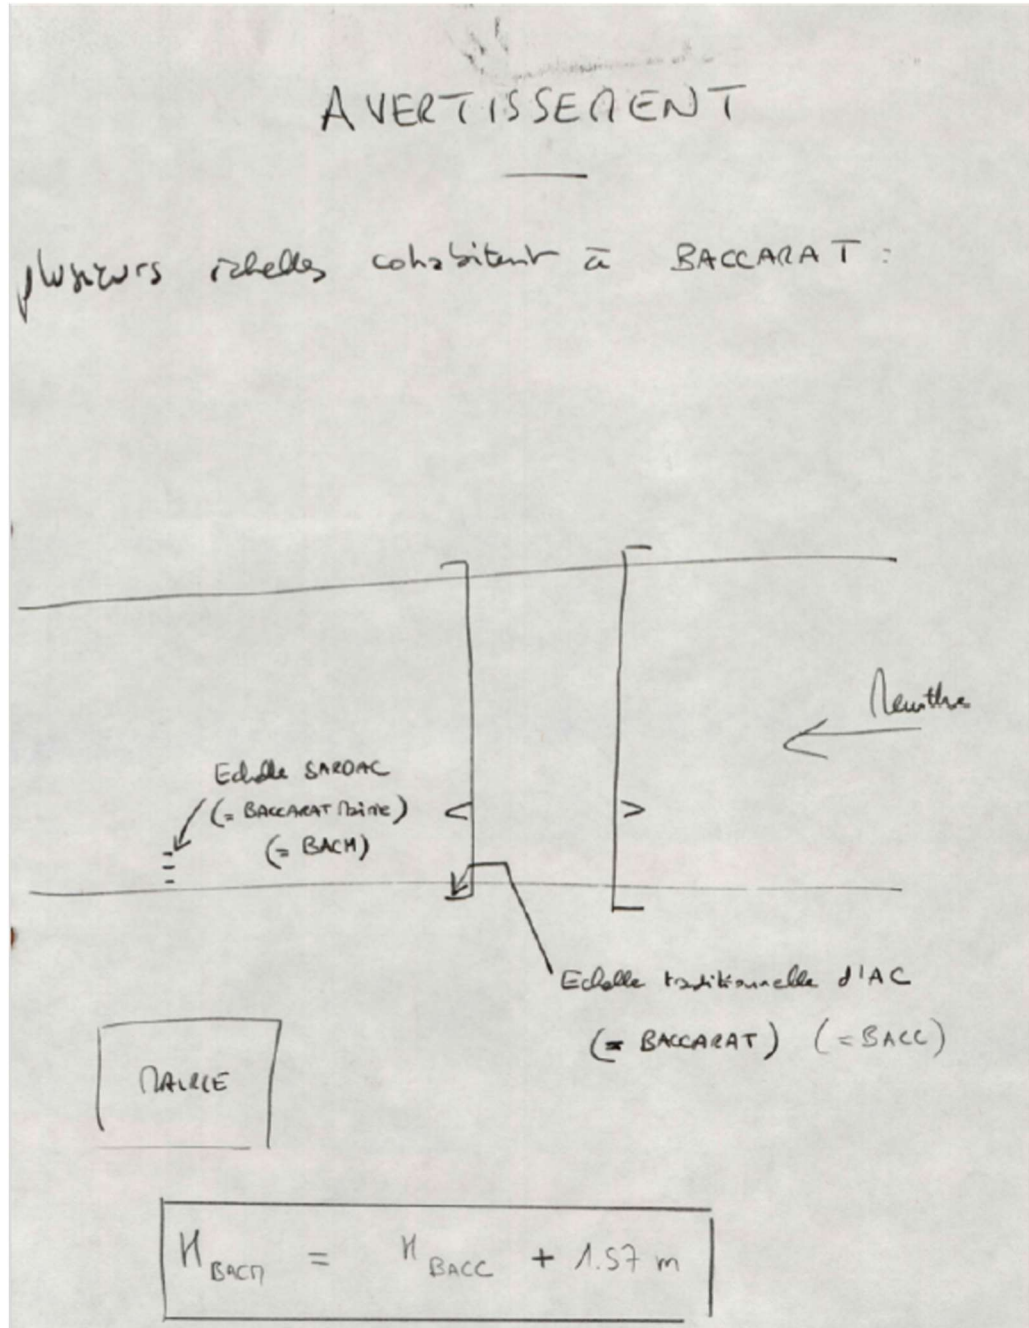 AVERTISSEMENT
plusieurs échelles cohabitent à BACCARAT :
Meurthe
Echelle SARDAC
(= BACCARAT Mairie)
(= BACM)
Echelle traditionnelle d'AC
(= BACCARAT) (= BACC)
MAIRIE
H BACM = H BACC + 1.57 m